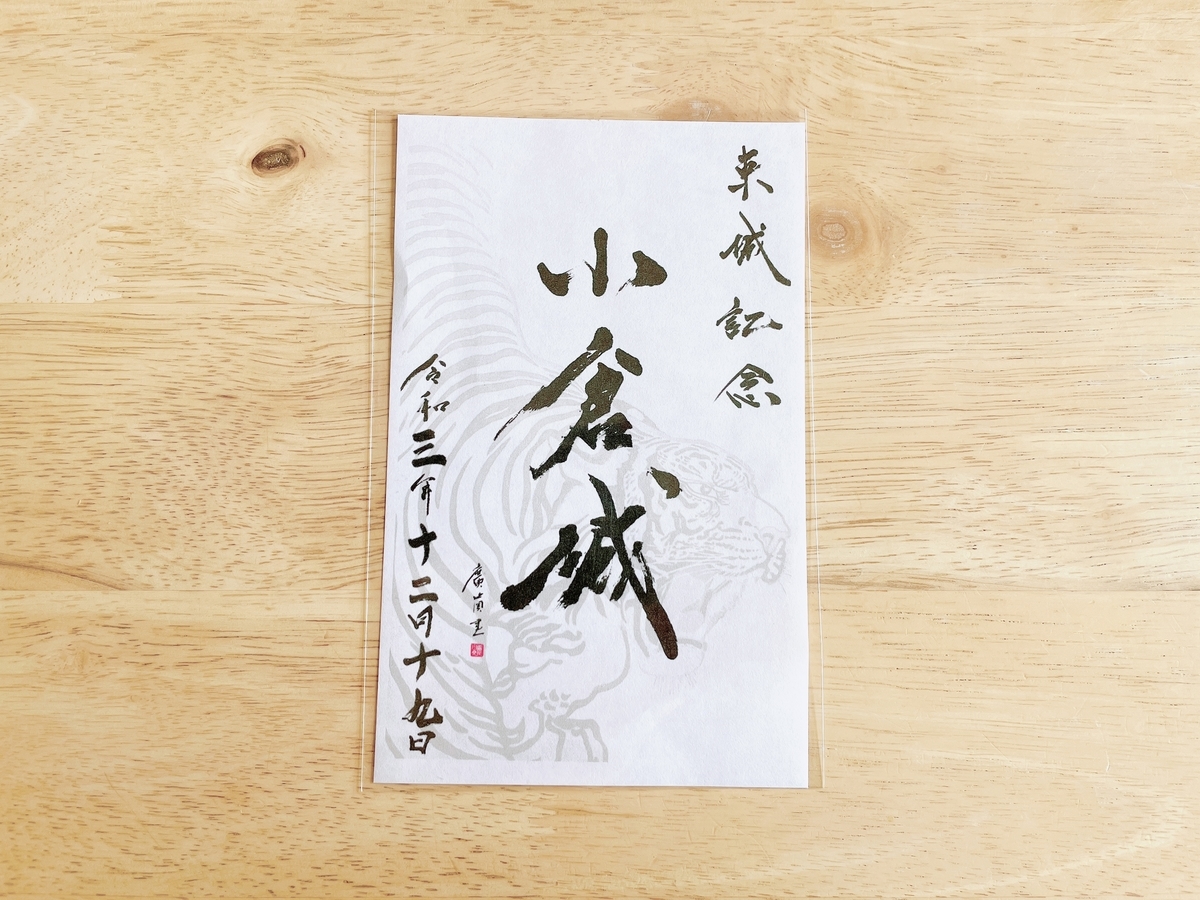 来城記念
小倉城
令和三年十二月十九日